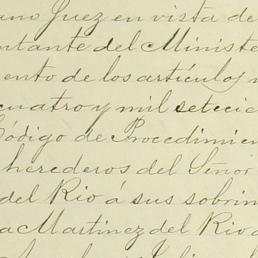 ano Juez en vista de
ntante del Ministe
ento de los artículos
cuatro y mil setecie
Código de Procedimien
herederos del Señor
del Rio á sus sobrin
a Martinez del Rio